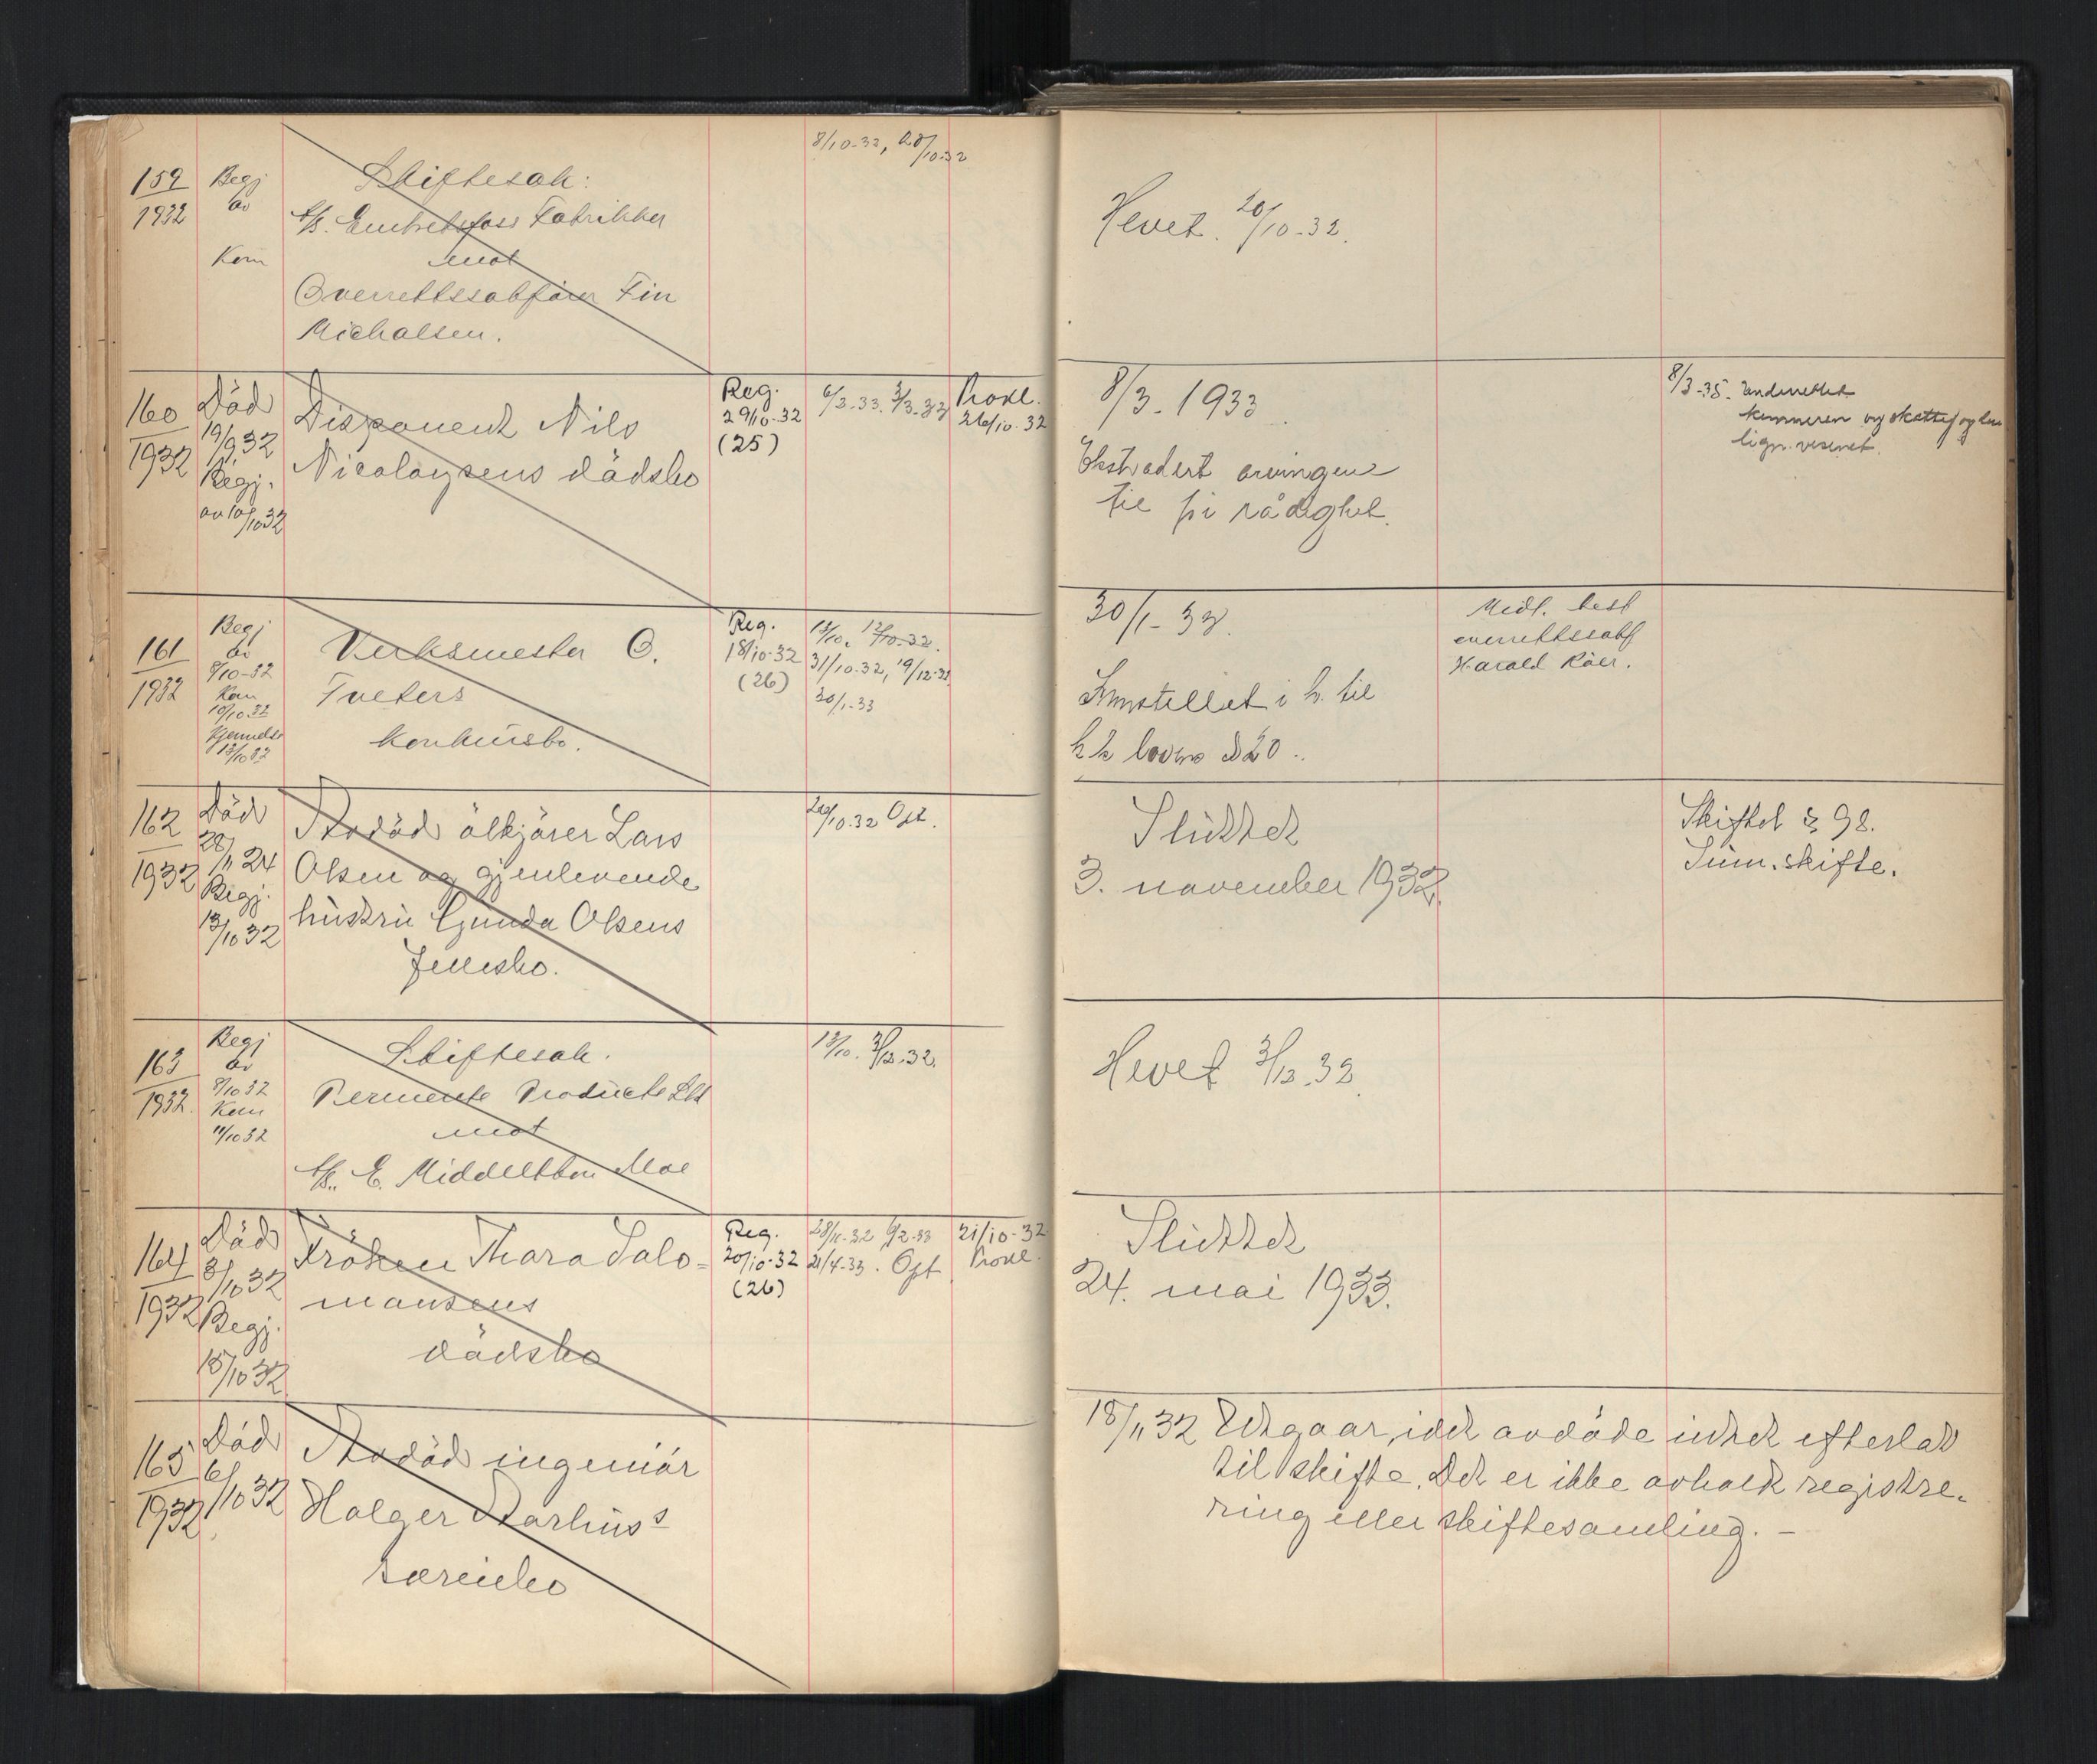 8/10-32, 20/10-32
159
1932
Begj
av
Kom
Skiftesak:
A/S. Embretsfoss Fabrikker
mot
Overrettssakfører Fin
Michalsen.
Hevet. 20/10-32.
160
1932
Död
19/9 32
Begj.
av 10/10 32
Disponent Nils
Nicolaysens dödsbo
Reg.
29/10-32
(25)
6/2-33. 8/3-33
Prokl.
26/10-32
8/3-1933
Ekstradert arvingene
til fri rådighet.
8/3-35. Underrettet
kemneren og skattef og
lign.vesenet.
161
1932
Begj
av
8/10-32
Kom
10/10 32
Kjennelse
13/10 32
Verksmester O.
Tveters
konkursbo.
Reg.
18/10-32
(26)
13/10. 17/10-32.
31/10-32, 19/12-32
30/1-33
30/1-33.
Innstillet i h. til
kk lovens § 20.
Midl. best
overrettssakf
Harald Röer.
162
1932
Död
28/11 24
Begj.
13/10 32
Avdöd ölkjörer Lars
Olsen og gjenlevende
hustru Gunda Olsens
fellesbo.
20/10-32 Opt.
Sluttet
3. november 1932.
Skiftel § 98.
Sum. skifte.
163
1932.
Begj
av
8/10 32
Kom
11/10 32
Skiftesak.
Permente Products Ltd
mot
A/S. E. Middelthon Moe
13/10. 3/12.32.
Hevet 3/12.32
164
1932
Död
3/10 32
Begj.
15/10 32
Fröken Thara Salo-
mansens
dödsbo
Reg.
20/10-32
(26)
28/11-32 6/2-33
21/4-33. Opt
21/10-32
Prokl.
Sluttet
24. mai 1933.
165
1932
Död
6/10 32
Avdöd ingeniör
Holger Aarhus's
særeiebo
18/11 32 Utgaar, idet avdöde intet efterlot
til skifte. Det er ikke avholdt registre-
ring eller skiftesamling. -